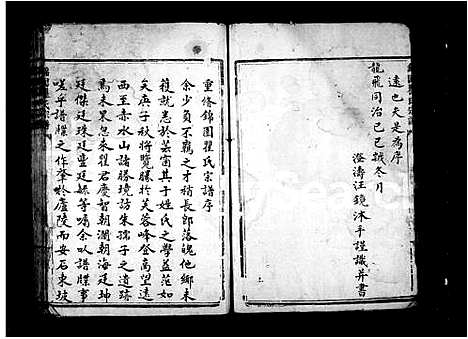 遠也夫是為序
龍飛同治己巳歲冬月
澄濤汪鏡沐手謹識并書
重修錦園瞿氏宗譜序
余少負不羈之才稍長即落魄他鄉未
獲就塾於芸窗其于姓氏之學益茫如
矣庚子秋將覽勝於芙蓉峰登高望遠
西至赤水山諸勝境訪朱孺子之遺跡
焉未果忽瞿君慶智朝瀾朝海廷坤
廷傑廷珠廷璽廷綵等囑余以譜牒事
嗟乎譜牒之作肇於廬陵而安石東坡